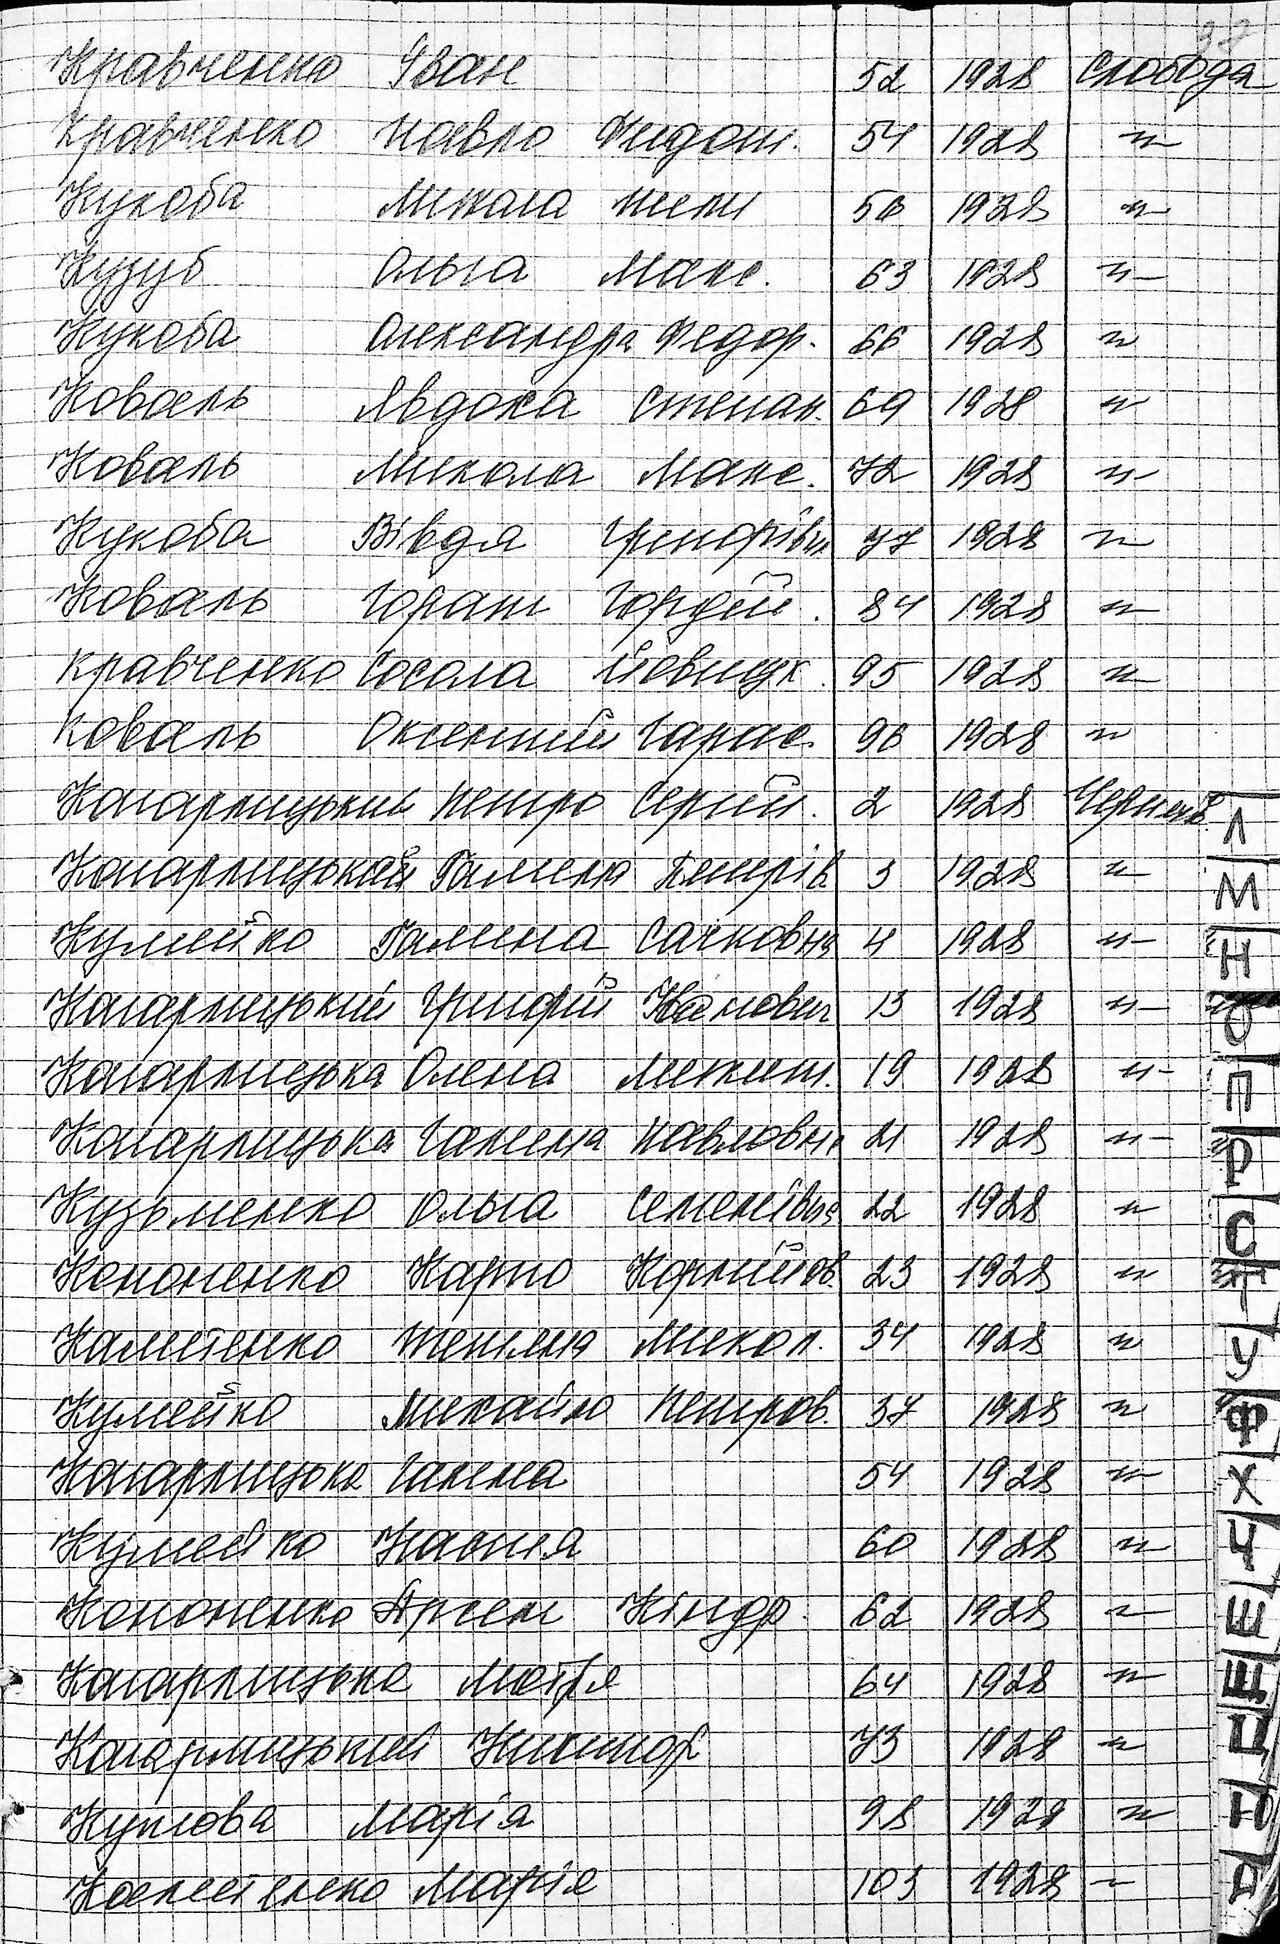 37
Кравченко Іван 52 1928 Слобода
Кравченко Павло Федот. 54 1928 -"-
Кукоба Микола 56 1928 -"-
Кузуб Ольга Макс. 63 1928 -"-
Кукоба Олександра Федор. 66 1928 -"-
Коваль Явдоха Степан. 69 1928 -"-
Коваль Микола Макс. 72 1928 -"-
Кукоба Вівдя Григорівн 77 1928 -"-
Коваль Гордій. 84 1928 -"-
Кравченко 95 1928 -"-
Коваль Оксентій Тарас. 96 1928 -"-
Кагарлицький Петро Сергій. 2 1928 Чернеч.
Кагарлицький Петрів 3 1928 -"-
Кумейко Галина Сачковна 4 1928 -"-
Кагарлицький Григорій Іванович 13 1928 -"-
Кагарлицька Олена Микит. 19 1928 -"-
Кагарлицька Галина Павловн 21 1928 -"-
Кузьменко Ольга Семенівна 22 1928 -"-
Кононенко Карпо Корнійов. 23 1928 -"-
Микол. 34 1928 -"-
Кумейко Михайло Петров. 37 1928 -"-
Кагарлицька Галина 54 1928 -"-
Кумейко Настя 60 1928 -"-
Кононенко Арсен Кіндр. 62 1928 -"-
Кагарлицька Мотря 64 1928 -"-
Кагарлицький Никифор 73 1928 -"-
Марія 98 1928 -"-
Марія 103 1928 -"-
Л
М
Н
О
П
Р
С
Т
У
Ф
Х
Ч
Ш